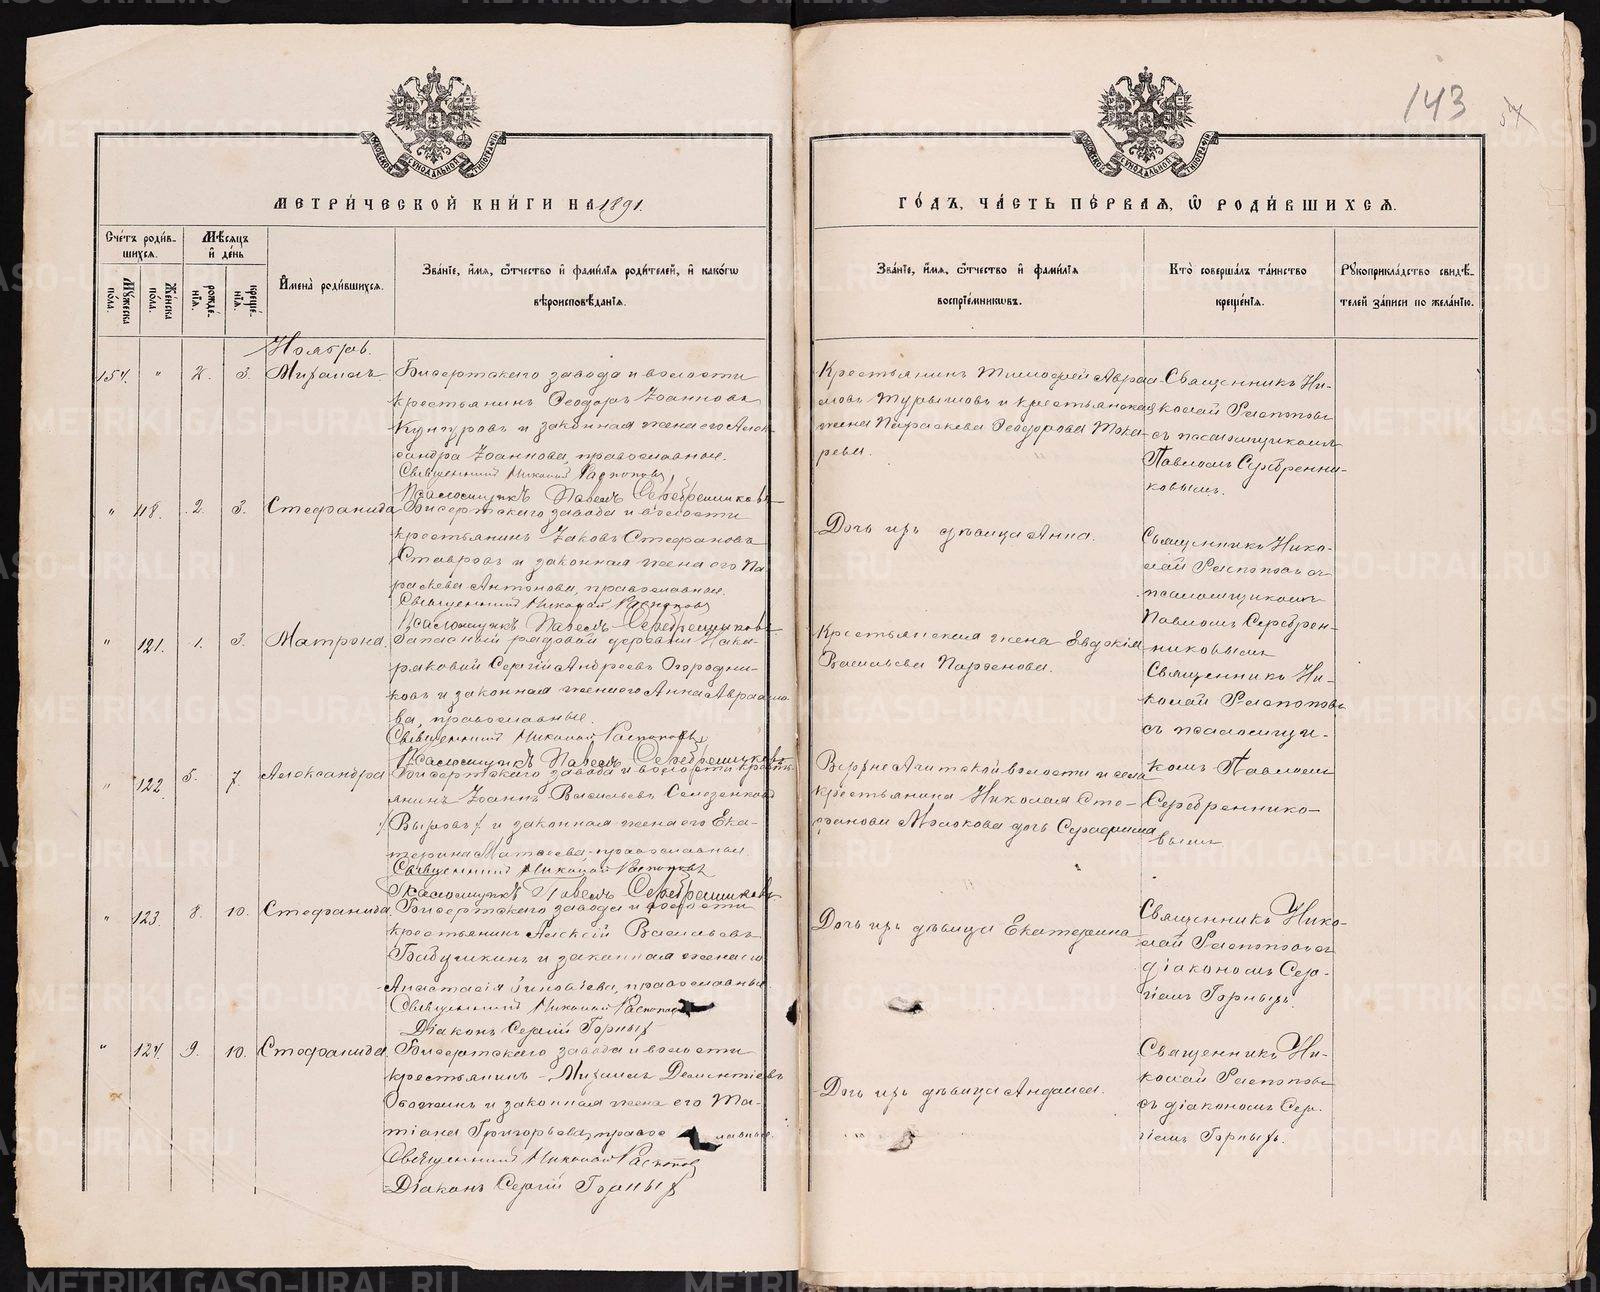 143
МЕТРИ́ЧЕСКОЙ КНИ́ГИ НА 1891.
ГО́ДЪ, ЧА́СТЬ ПЕ́РВАЯ, Ѡ РОДИ́ВШИХСЯ.
Сче́тъ роди́в-
шихся.
Мѣ́сяцъ
и҆ де́нь
Му́жеска
по́ла.
Же́нска
по́ла.
рожде́-
нїѧ.
креще́-
нїѧ.
И҆мена̀ роди́вшихся.
Зва́нїе, и҆́мя, ѻ҆́тчество и҆ фами́лїя роди́телей, и҆ како́гѡ
вѣроисповѣ́данїя.
Зва́нїе, и҆́мя, ѻ҆́тчество и҆ фами́лїя
воспрїе́мникѡвъ.
Кто̀ соверша́лъ та́инство
креще́нїя.
Рꙋкоприкла́дство свидѣ́-
телей за́писи по жела́нїю.
Ноябрь.
154. " 2. 3. Михаилъ. Бисертскаго завода и волости
крестьянинъ Ѳеодоръ Іоанновъ
Кунгуровъ и законная жена его Алек-
сандра Іоаннова, православные.
Священникъ Николай Распоповъ
Псаломщикъ Павелъ Серебренниковъ
Крестьянинъ Тимоѳей Авраа-
мовъ Турышовъ и крестьянская
жена Параскева Ѳеодорова Тока-
рева.
Священникъ Ни-
колай Распоповъ
съ псаломщикомъ
Павломъ Серебренни-
ковымъ.
" 118. 2. 3. Стефанида Бисертскаго завода и волости
крестьянинъ Іаковъ Стефановъ
Ставровъ и законная жена его Па-
раскева Антонова, православные.
Священникъ Николай Распоповъ
Псаломщикъ Павелъ Серебренниковъ
Дочь ихъ дѣвица Анна.
Священникъ Нико-
лай Распоповъ съ
псаломщикомъ
Павломъ Серебрен-
никовымъ
" 121. 1. 3. Матрона. Запасный рядовой деревни
Сергій Андреевъ Огородни-
ковъ и законная жена его Анна Авраамо-
ва, православные.
Священникъ Николай Распоповъ
Псаломщикъ Павелъ Серебренниковъ
Крестьянская жена Евдокія
Васильева Парѳенова.
Священникъ Ни-
колай Распоповъ
съ псаломщи-
комъ Павломъ
Серебреннико-
вымъ
" 122. 5. 7. Александра Бисертскаго завода и волости кресть-
янинъ Іоаннъ Васильевъ Селезенковъ
/Выровъ/ и законная жена его Ека-
терина Матѳеева, православные.
Священникъ Николай Распоповъ
Псаломщикъ Павелъ Серебренниковъ
Верхне Ачитской волости и села
крестьянина Николая Сте-
фанова дочь Серафима
" 123. 8. 10. Стефанида. Бисертскаго завода и волости
крестьянинъ Алексій Васильевъ
Бабушкинъ и законная жена его
Анастасія Зиновіева, православные.
Священникъ Николай Распоповъ
Діаконъ Сергій Горныхъ
Дочь ихъ дѣвица Екатерина
Священникъ Нико-
лай Распоповъ съ
діакономъ Сер-
гіемъ Горныхъ
" 124. 9. 10. Стефанида. Бисертскаго завода и волости
крестьянинъ Михаилъ Дементіевъ
и законная жена его Та-
тіана Григорьева, правос лавные.
Священникъ Николай Распоповъ
Діаконъ Сергій Горныхъ
Дочь ихъ дѣвица
Священникъ Ни-
колай Распоповъ
съ діакономъ Сер-
гіемъ Горныхъ.